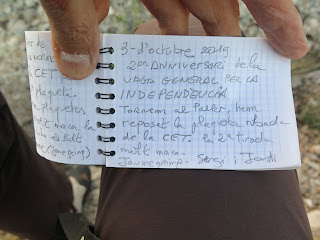 3-d'octubre 2019
2on ANNIVERSARI de la
VAGA GENERAL PER LA
INDEPENDÈNCIA
Tornem al Puter, hem
reposat la plaqueta robada
de la CET. La 2ª tirada
molt maca.
Jaumegrimp. Sergi i Jordi
CET
plaqueta.
plaquetes
maca la